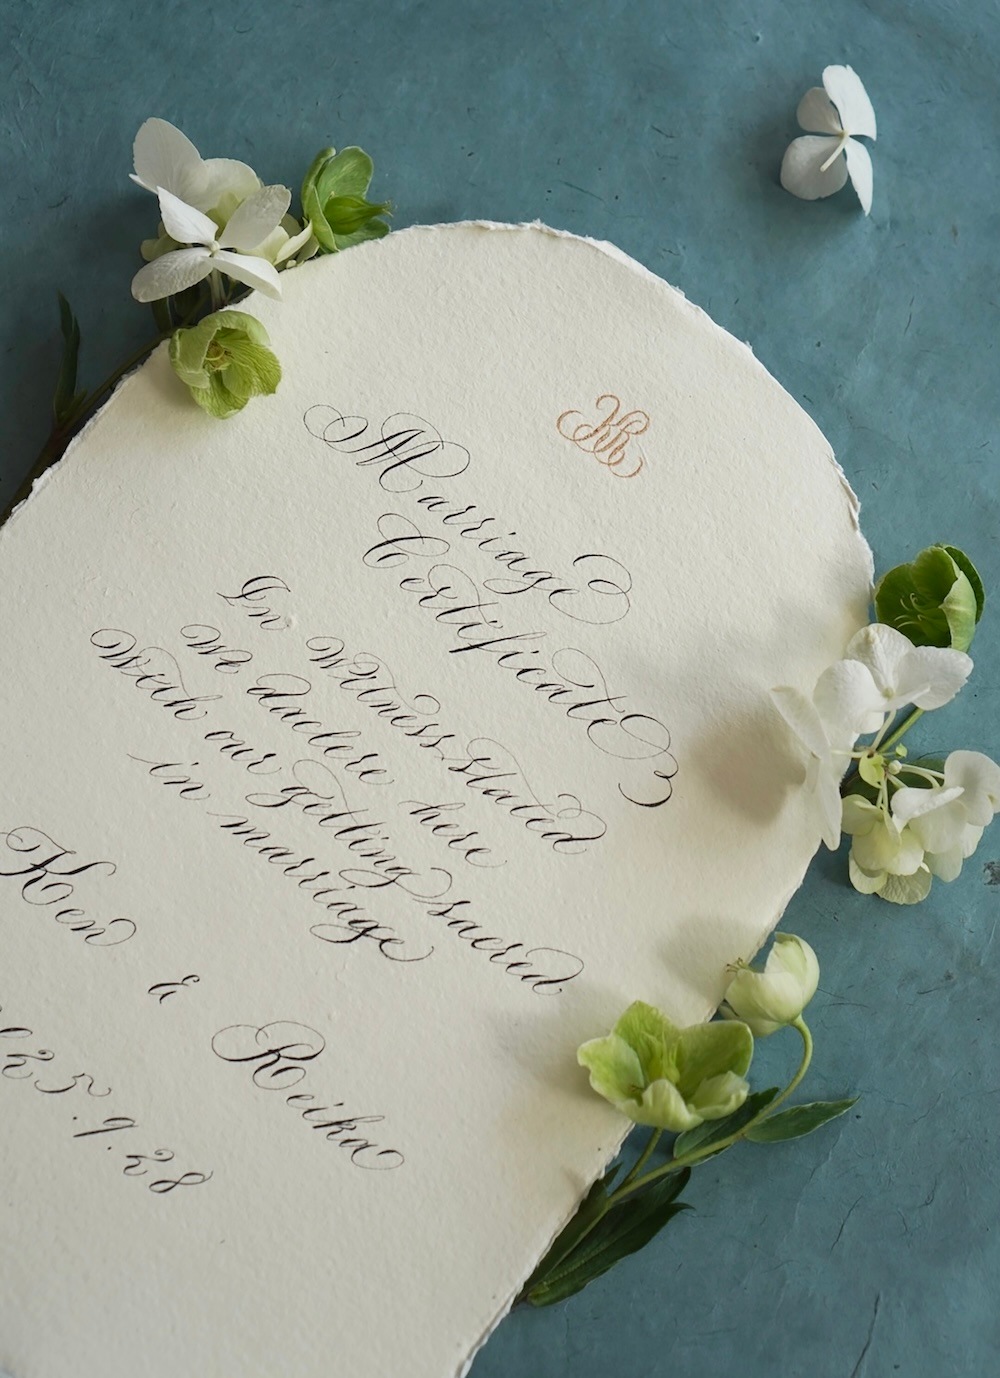 Marriage
Certificate
In witness stated
we daclere here
with our getting sacred
in marriage
Ken
&
Reika
25.9.28